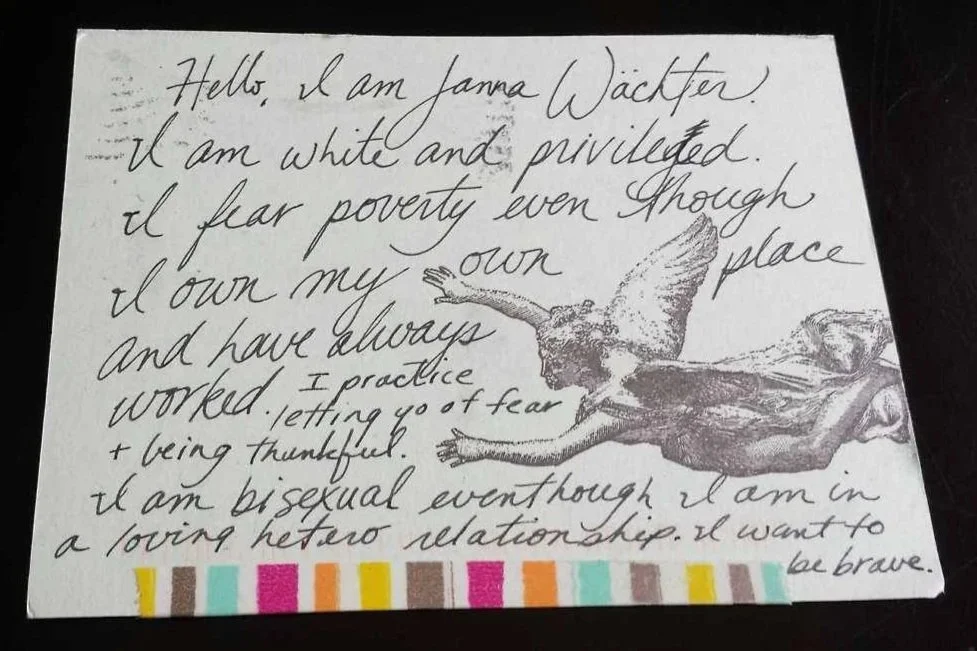 Hello, I am Janna Wächter.
I am white and privileged.
I fear poverty even though
I own my own place
and have always
worked. I practice
letting go of fear
+ being thankful.
I am bisexual eventhough I am in
a loving hetero relationship. I want to
be brave.